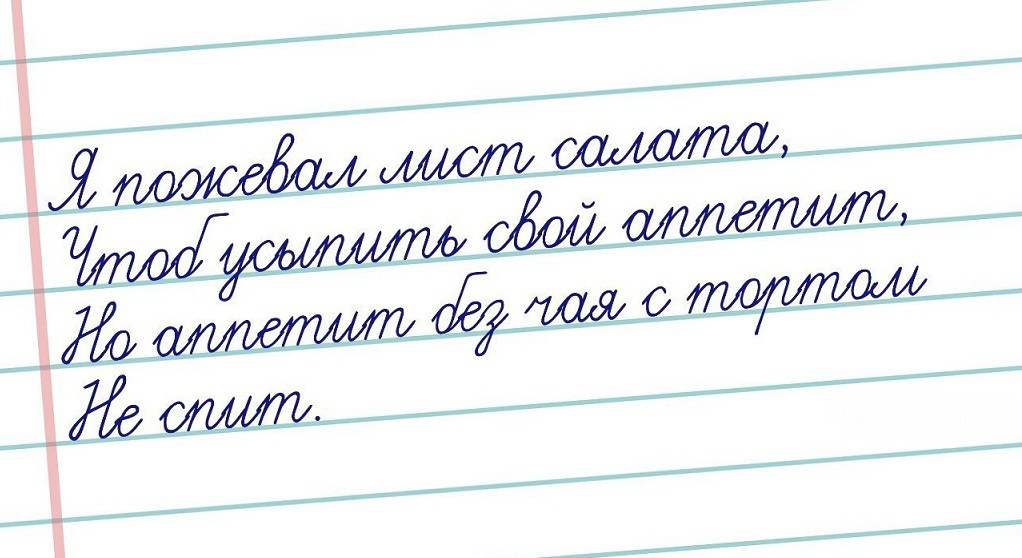 Я пожевал лист салата,
Чтоб усыпить свой аппетит,
Но аппетит без чая с тортом
Не спит.